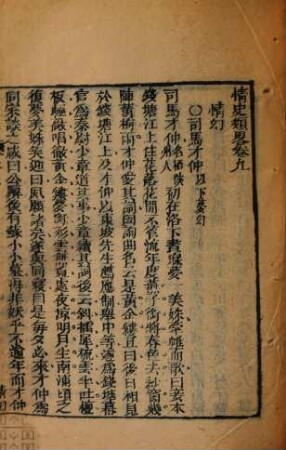 情史類畧卷九
情幻
○司馬才仲 以下夢幻
司馬才仲 初在洛下晝寢夢一美姝牽帷而歌曰妾本
錢塘江上住花落花開不管流年度燕子銜將春色去紗窗幾
陣黃梅雨才仲愛其詞因詢曲名云是黃金縷且曰後日相見
於錢塘江上及才仲以東坡先生薦應制舉中等遂為錢塘幕
官為秦少章道其事少章續其詞後云斜插犀梳雲半吐檀
板輕敲唱徹黃金縷夢斷彩雲無覓處夜涼明月生南浦頃之
復夢美姝笑迎曰夙願諧矣遂與同寢自是每夕必來才仲為
同寀談之咸曰公廨後有蘇小小墓得非妖乎不逾年而才仲